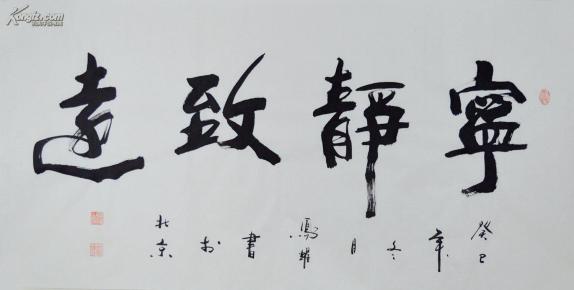 寧靜致遠
癸巳年冬月馮耀書於北京
Kongfz.com